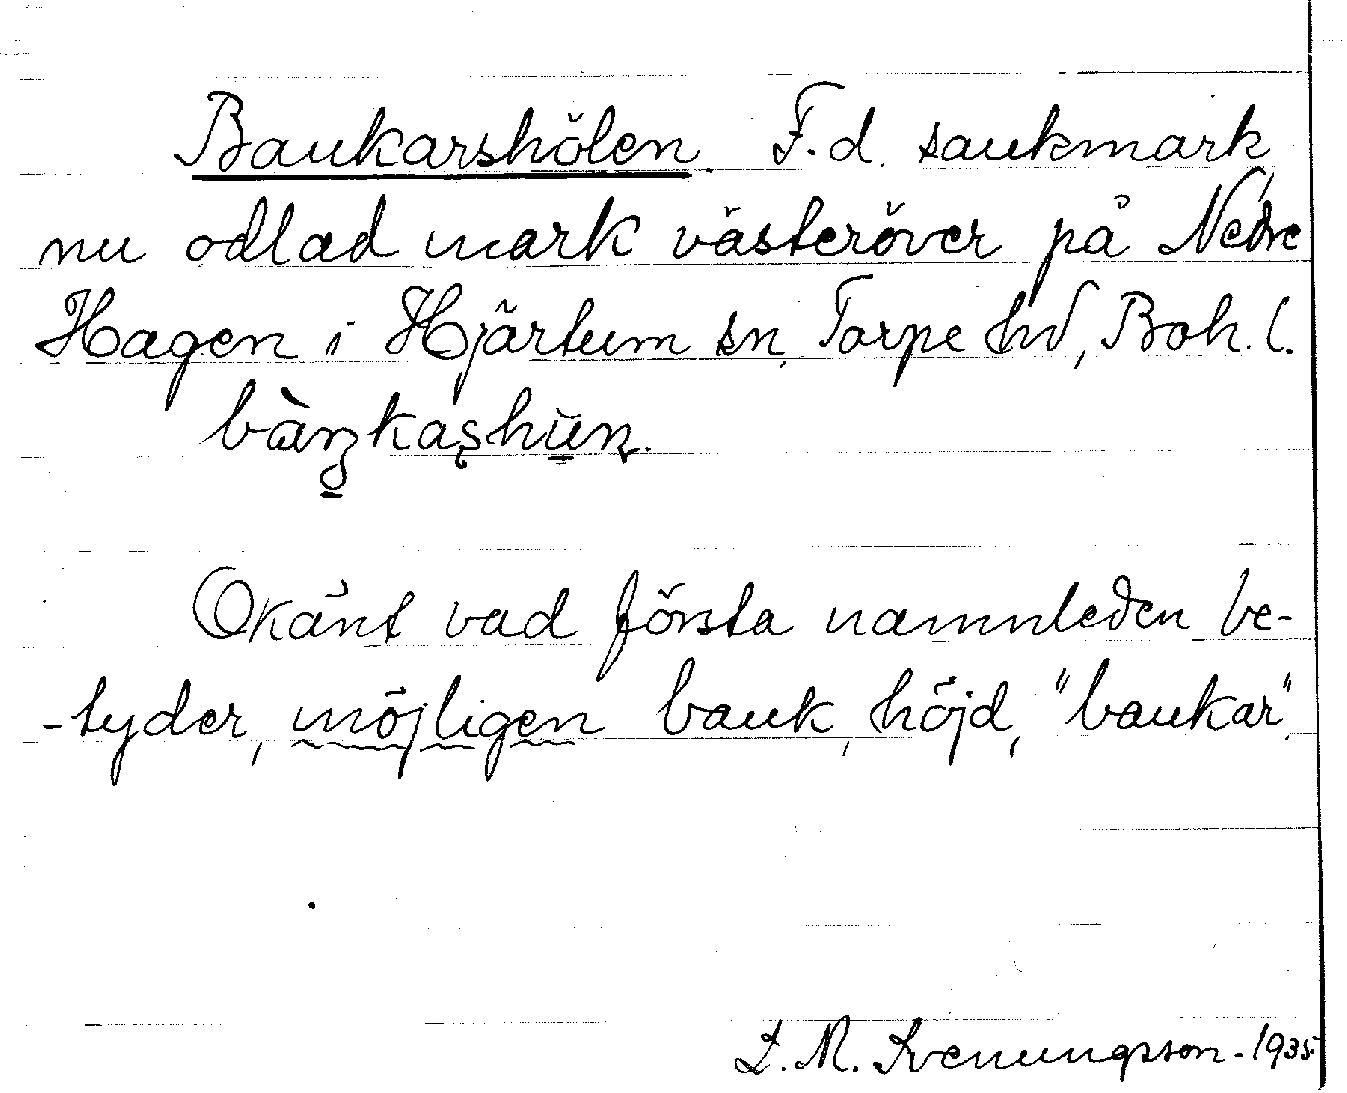 Bankarshölen. F.d. sankmark,
nu odlad mark västeröver på Nedre
Hagen i Hjärtum sn, Torpe hd, Boh. l.
Okänt vad första namnleden be-
-tyder, möjligen bank, höjd, "bankar".
M. Svenungsson-1935